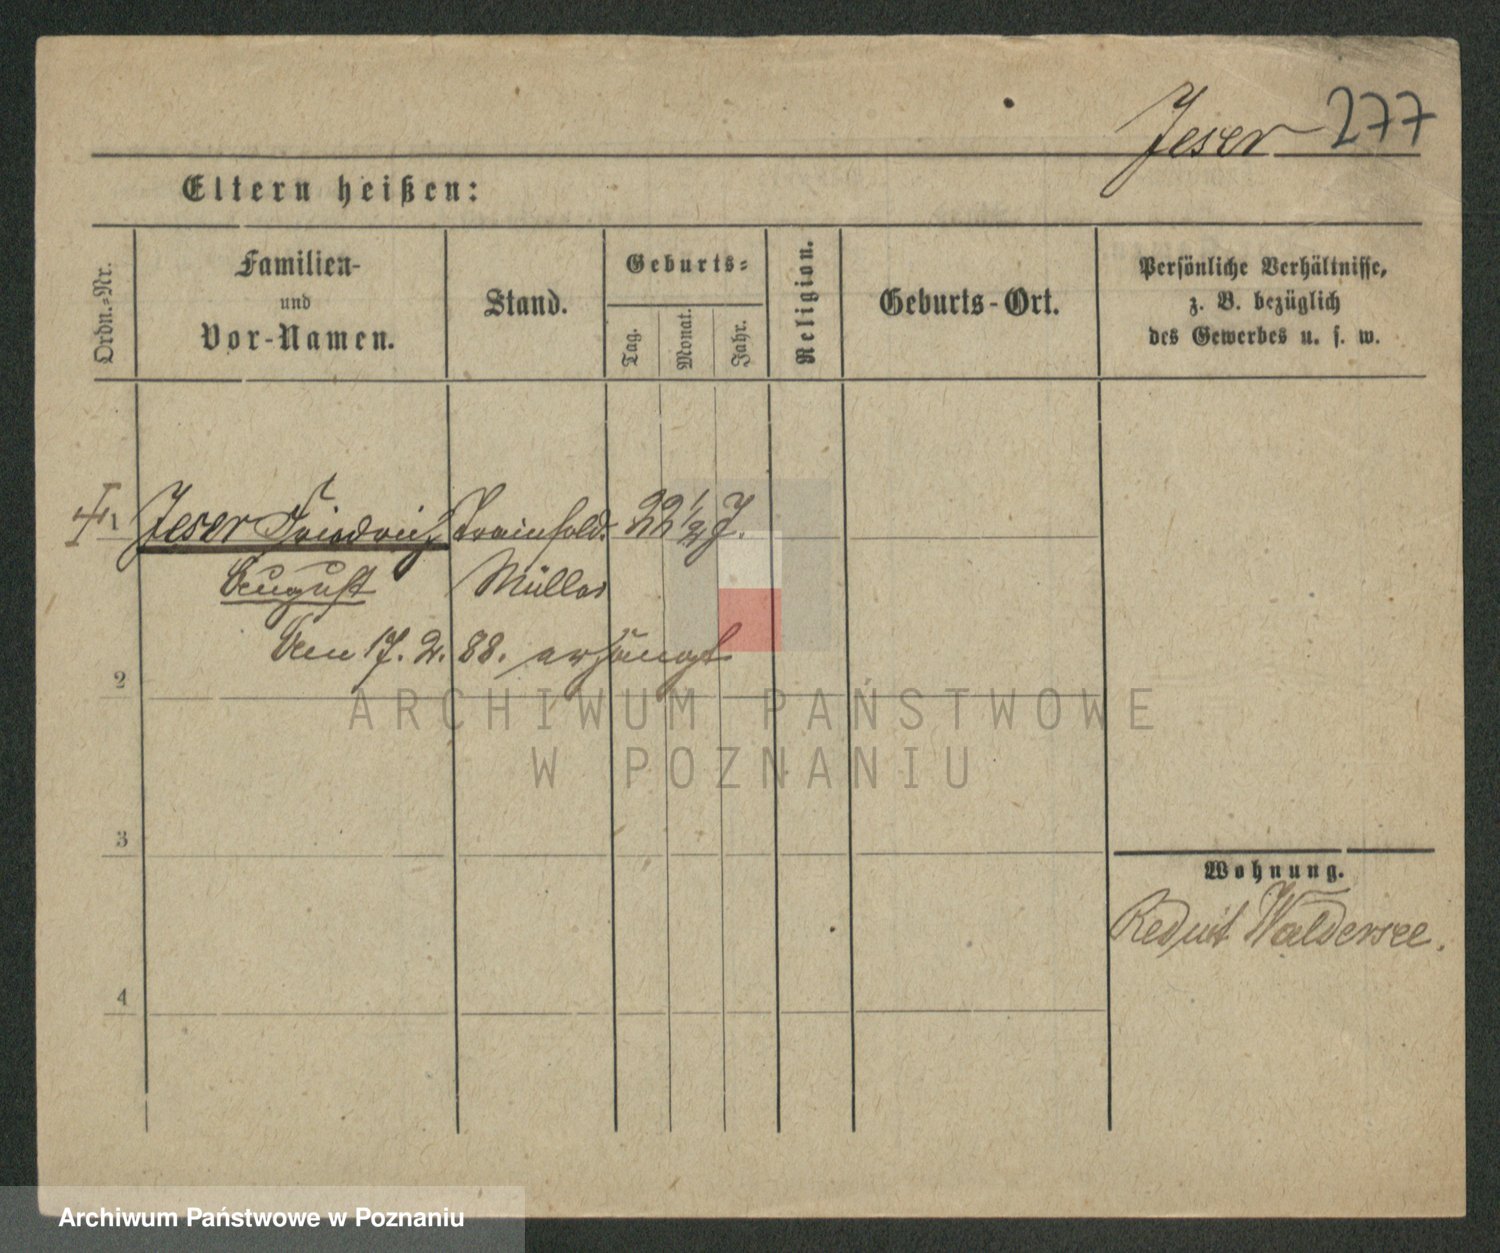 Jeser 277
Eltern heißen:
Ordn.-Nr.
Familien-
und
Vor-Namen.
Stand.
Geburts-
Tag.
Monat.
Jahr.
Religion.
Geburts-Ort.
Persönliche Verhältnisse,
z. B. bezüglich
des Gewerbes u. s. w.
1 Jeser Friedrich Trainsold. 22 1/2 J.
August Müller
Am 17. 2. 88. erhängt
2
3
4
Wohnung.
Reduit Waldersee.
ARCHIWUM PAŃSTWOWE
W POZNANIU
Archiwum Państwowe w Poznaniu